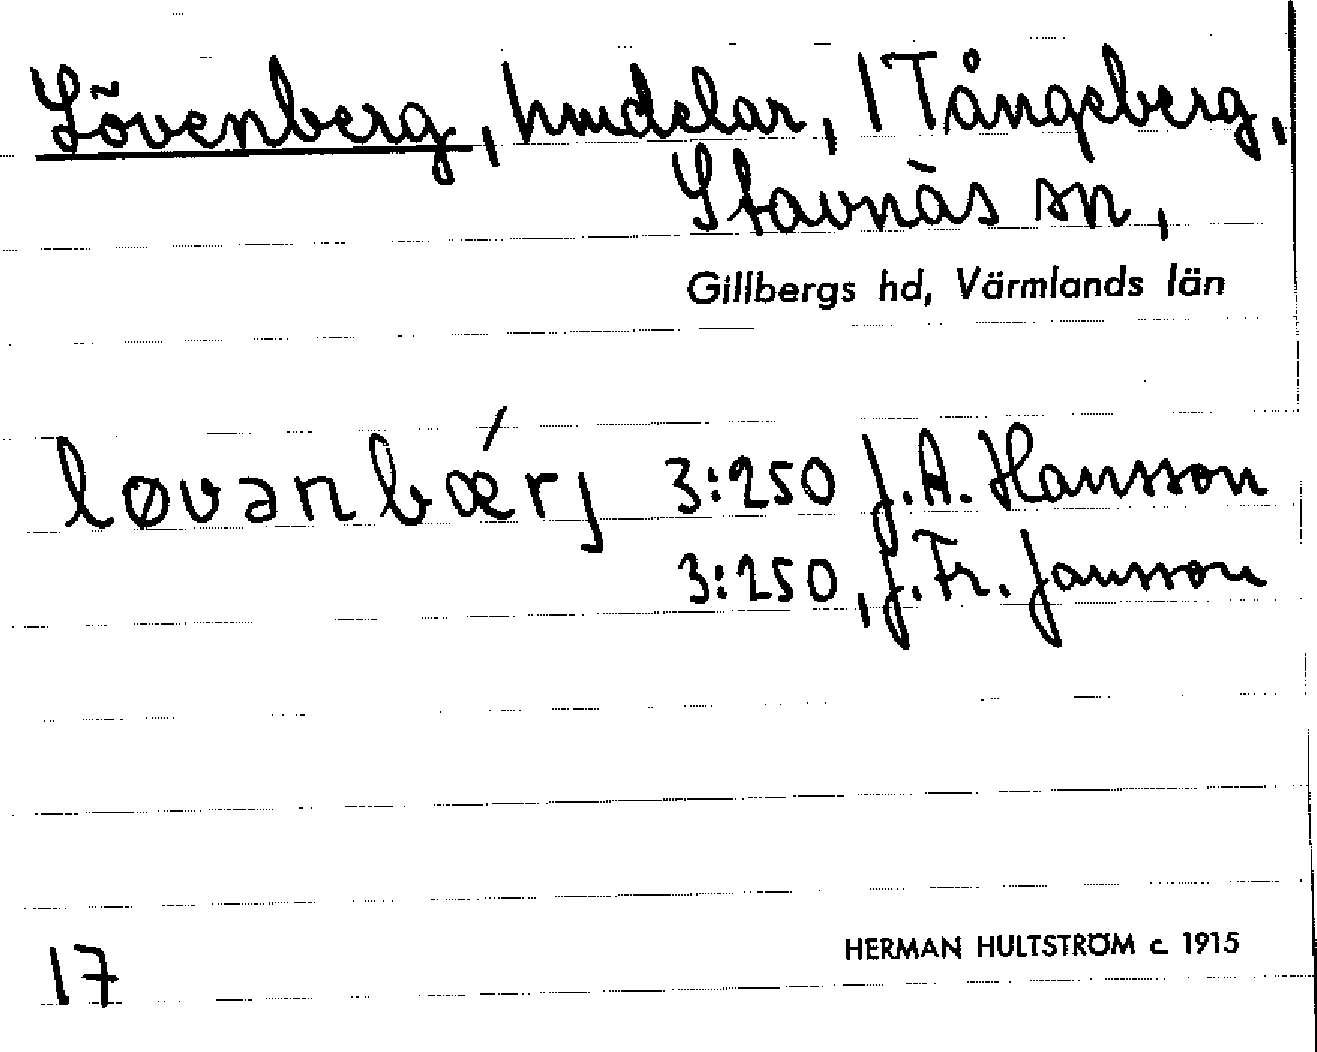 Lövenberg, hmdelar, 1 Tångeberg,
Stavnäs sn,
Gillbergs hd, Värmlands län
løvənbǽrj 3:250 J.A. Hansson
3:250, J.Fr. Jansson
17
HERMAN HULTSTRÖM c. 1915